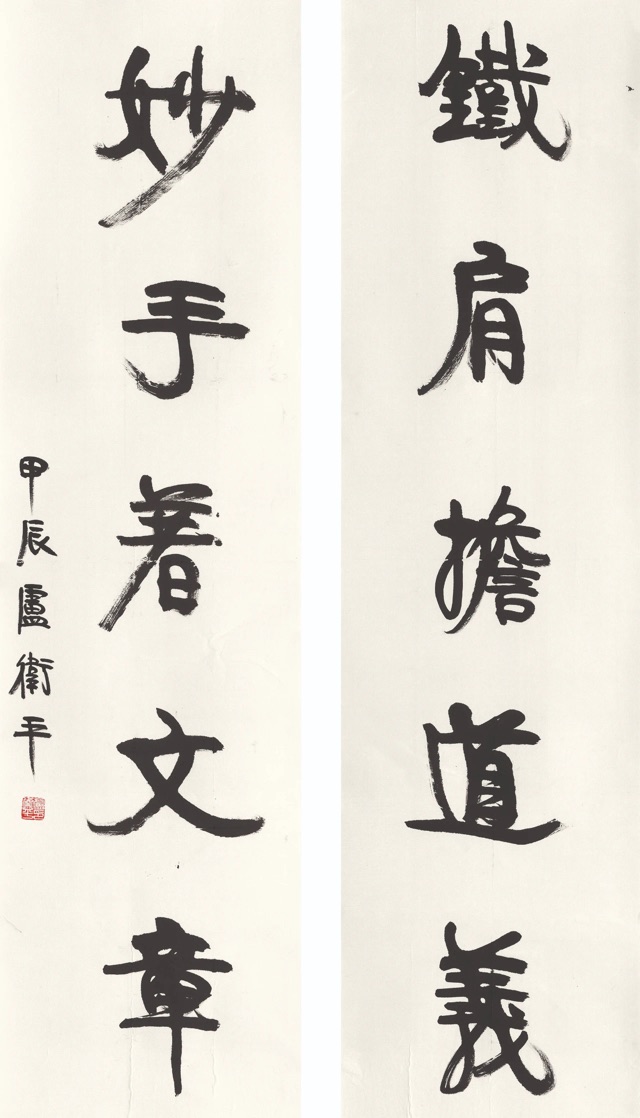 鐵肩擔道義
妙手著文章
甲辰盧衛平